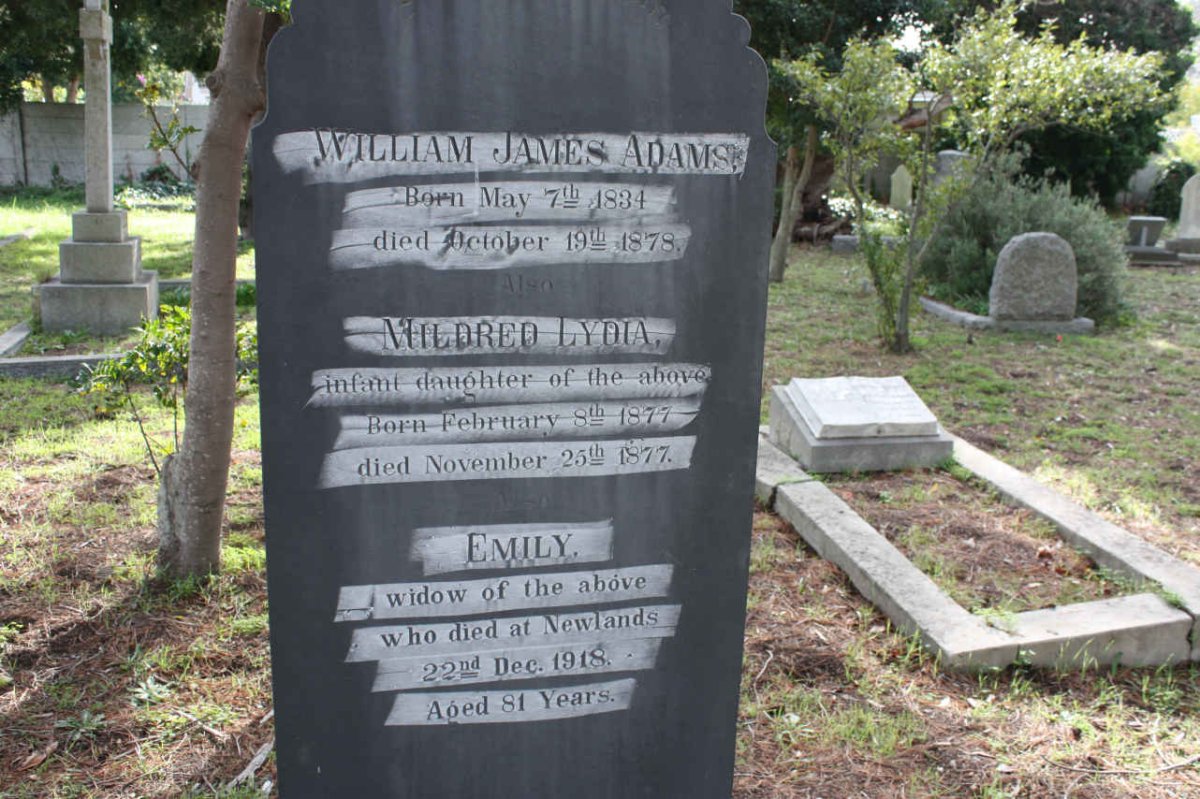 WILLIAM JAMES ADAMS,
Born May 7th 1834
died October 19th 1878.
Also
MILDRED LYDIA,
infant daughter of the above
Born February 8th 1877
died November 25th 1877.
Also
EMILY,
widow of the above
who died at Newlands
22nd Dec. 1918.
Aged 81 Years.